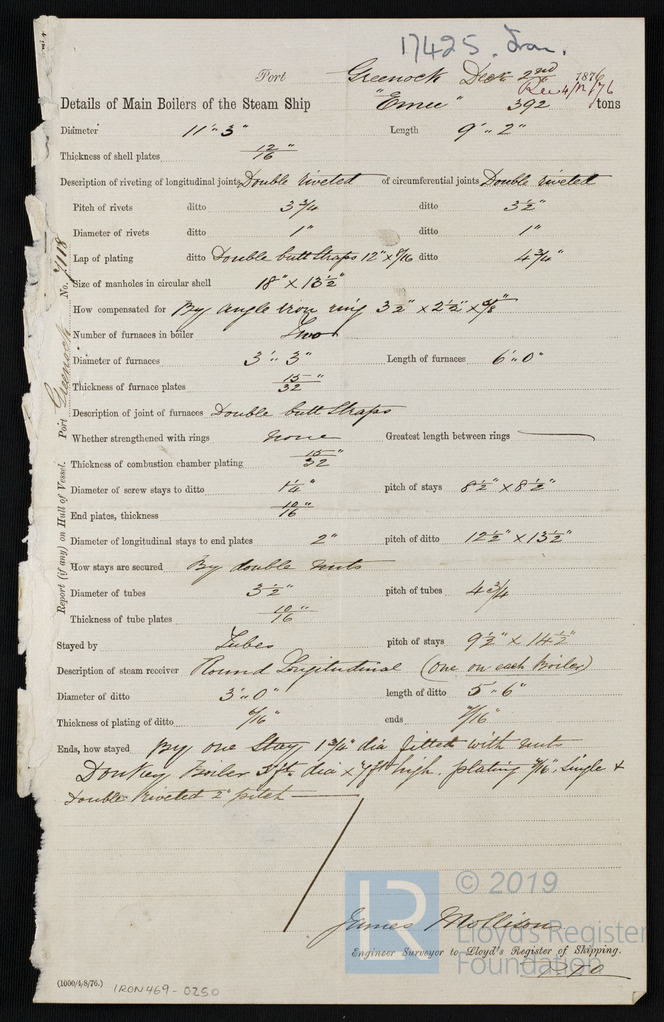 17425. Iron.
Port Greenock Decr 2nd 1876
Rec 4/12/76
Details of Main Boilers of the Steam Ship "Emeu" 392 tons
Diameter 11'.. 3" Length 9'.. 2"
Thickness of shell plates 12/16"
Description of riveting of longitudinal joints Double riveted of circumferential joints Double riveted
Pitch of rivets ditto 3 3/4 ditto 3 1/2"
Diameter of rivets ditto 1" ditto 1"
Lap of plating ditto Double butt straps 12" x 9/16 ditto 4 3/4"
Size of manholes in circular shell 18" x 13 1/2"
How compensated for By angle iron ring 3 1/2" x 2 1/2" x 5/8"
Number of furnaces in boiler Two
Diameter of furnaces 3'.. 3" Length of furnaces 6'.. 0"
Thickness of furnace plates 15/32"
Description of joint of furnaces Double butt straps
Whether strengthened with rings none Greatest length between rings
Thickness of combustion chamber plating 15/32"
Diameter of screw stays to ditto 1 1/4" pitch of stays 8 1/2" x 8 1/2"
End plates, thickness 10/16"
Diameter of longitudinal stays to end plates 2" pitch of ditto 12 1/2" x 13 1/2"
How stays are secured By double nuts
Diameter of tubes 3 1/2" pitch of tubes 4 3/4
Thickness of tube plates 10/16"
Stayed by Tubes pitch of stays 9 1/2" x 14 1/2"
Description of steam receiver Round Longitudinal (one on each Boiler)
Diameter of ditto 3'.. 0" length of ditto 5'.. 6"
Thickness of plating of ditto 6/16" ends 7/16"
Ends, how stayed By one Stay 1 3/4" dia fitted with nuts
Donkey Boiler dia x 7 ft high. plating 5/16", Single &
Double Riveted 2" pitch
James Mollison
Engineer Surveyor to Lloyd's Register of Shipping.
P.T.O
(1000/4/8/76.) IRON469-0250
Report (if any) on Hull of Vessel. Port Greenock No. 7118
© 2019
LR
Lloyd's Register
Foundation